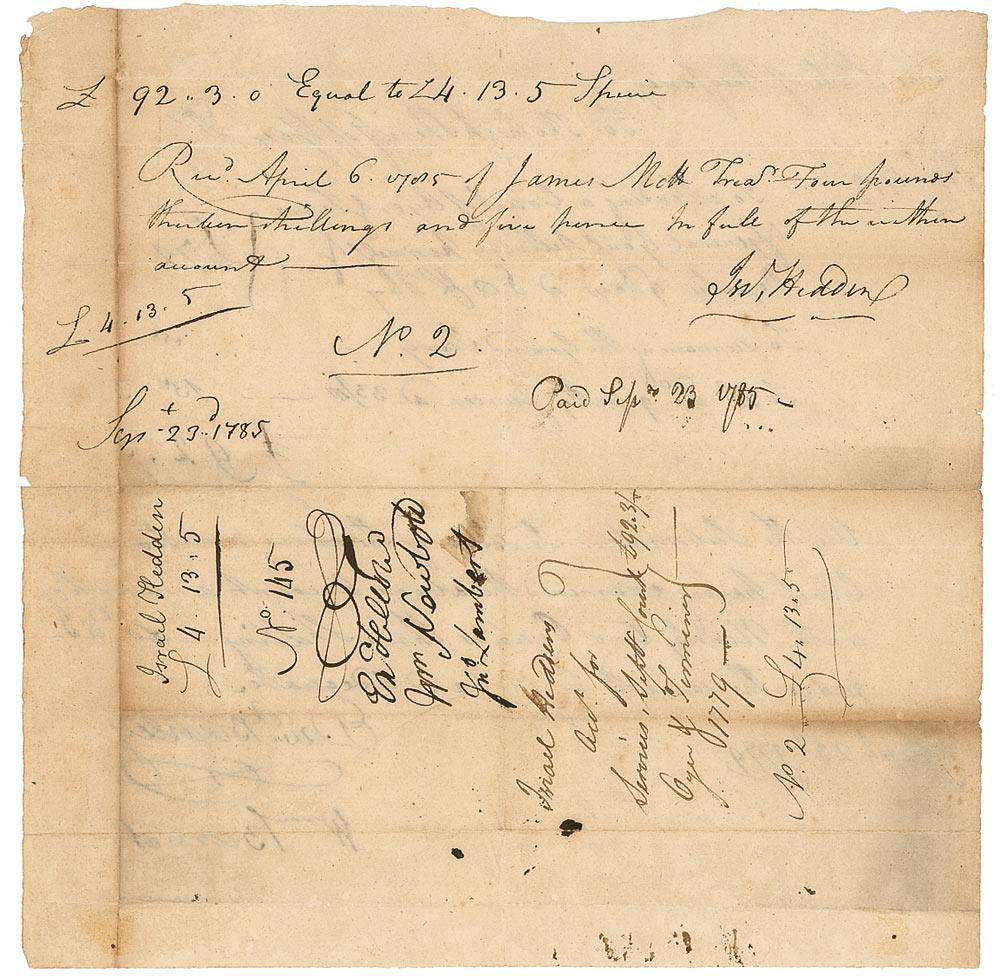 £ 92 .. 3 . 0 Equal to £4 . 13 . 5 Specie
Recd. April 6. 1785 of James Mott Treasr. Four pounds
thirteen shillings and five pence in full of the within
account
£ 4 . 13 . 5
Isrl. Hedden
No. 2
Paid Sepr 23 1785
Sept 23d. 1785
Israel Hedden
£ 4 . 13 : 5
No. 145
Wm Newbold
Jno Lambert
Israel Heddens
Act. for
Services, Sept Court £92.3/
Oyer & Terminer
1779
No. 2 £4 .. 13 . 5